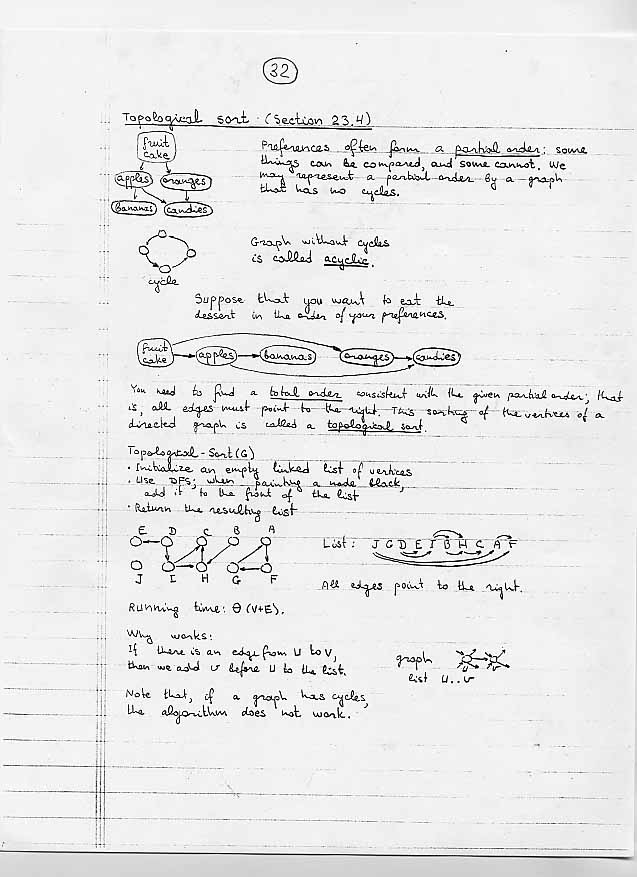 32
Topological sort (Section 23.4)
fruit
cake
apples oranges
bananas candies
Preferences often form a partial order: some
things can be compared, and some cannot. We
may represent a partial order by a graph
that has no cycles.
cycle
Graph without cycles
is called acyclic.
Suppose that you want to eat the
dessert in the order of your preferences.
fruit
cake
apples bananas oranges candies
You need to find a total order consistent with the given partial order; that
is, all edges must point to the right. This sorting of the vertices of a
directed graph is called a topological sort.
Topological-Sort(G)
• Initialize an empty linked list of vertices
• Use DFS; when painting a node black,
add it to the front of the list
• Return the resulting list
E D C B A
J I H G F
List: J G D E I B H C A F
All edges point to the right.
Running time: Θ(V+E).
Why works:
If there is an edge from u to v,
then we add v before u to the list.
graph
list u..v
Note that, if a graph has cycles,
the algorithm does not work.